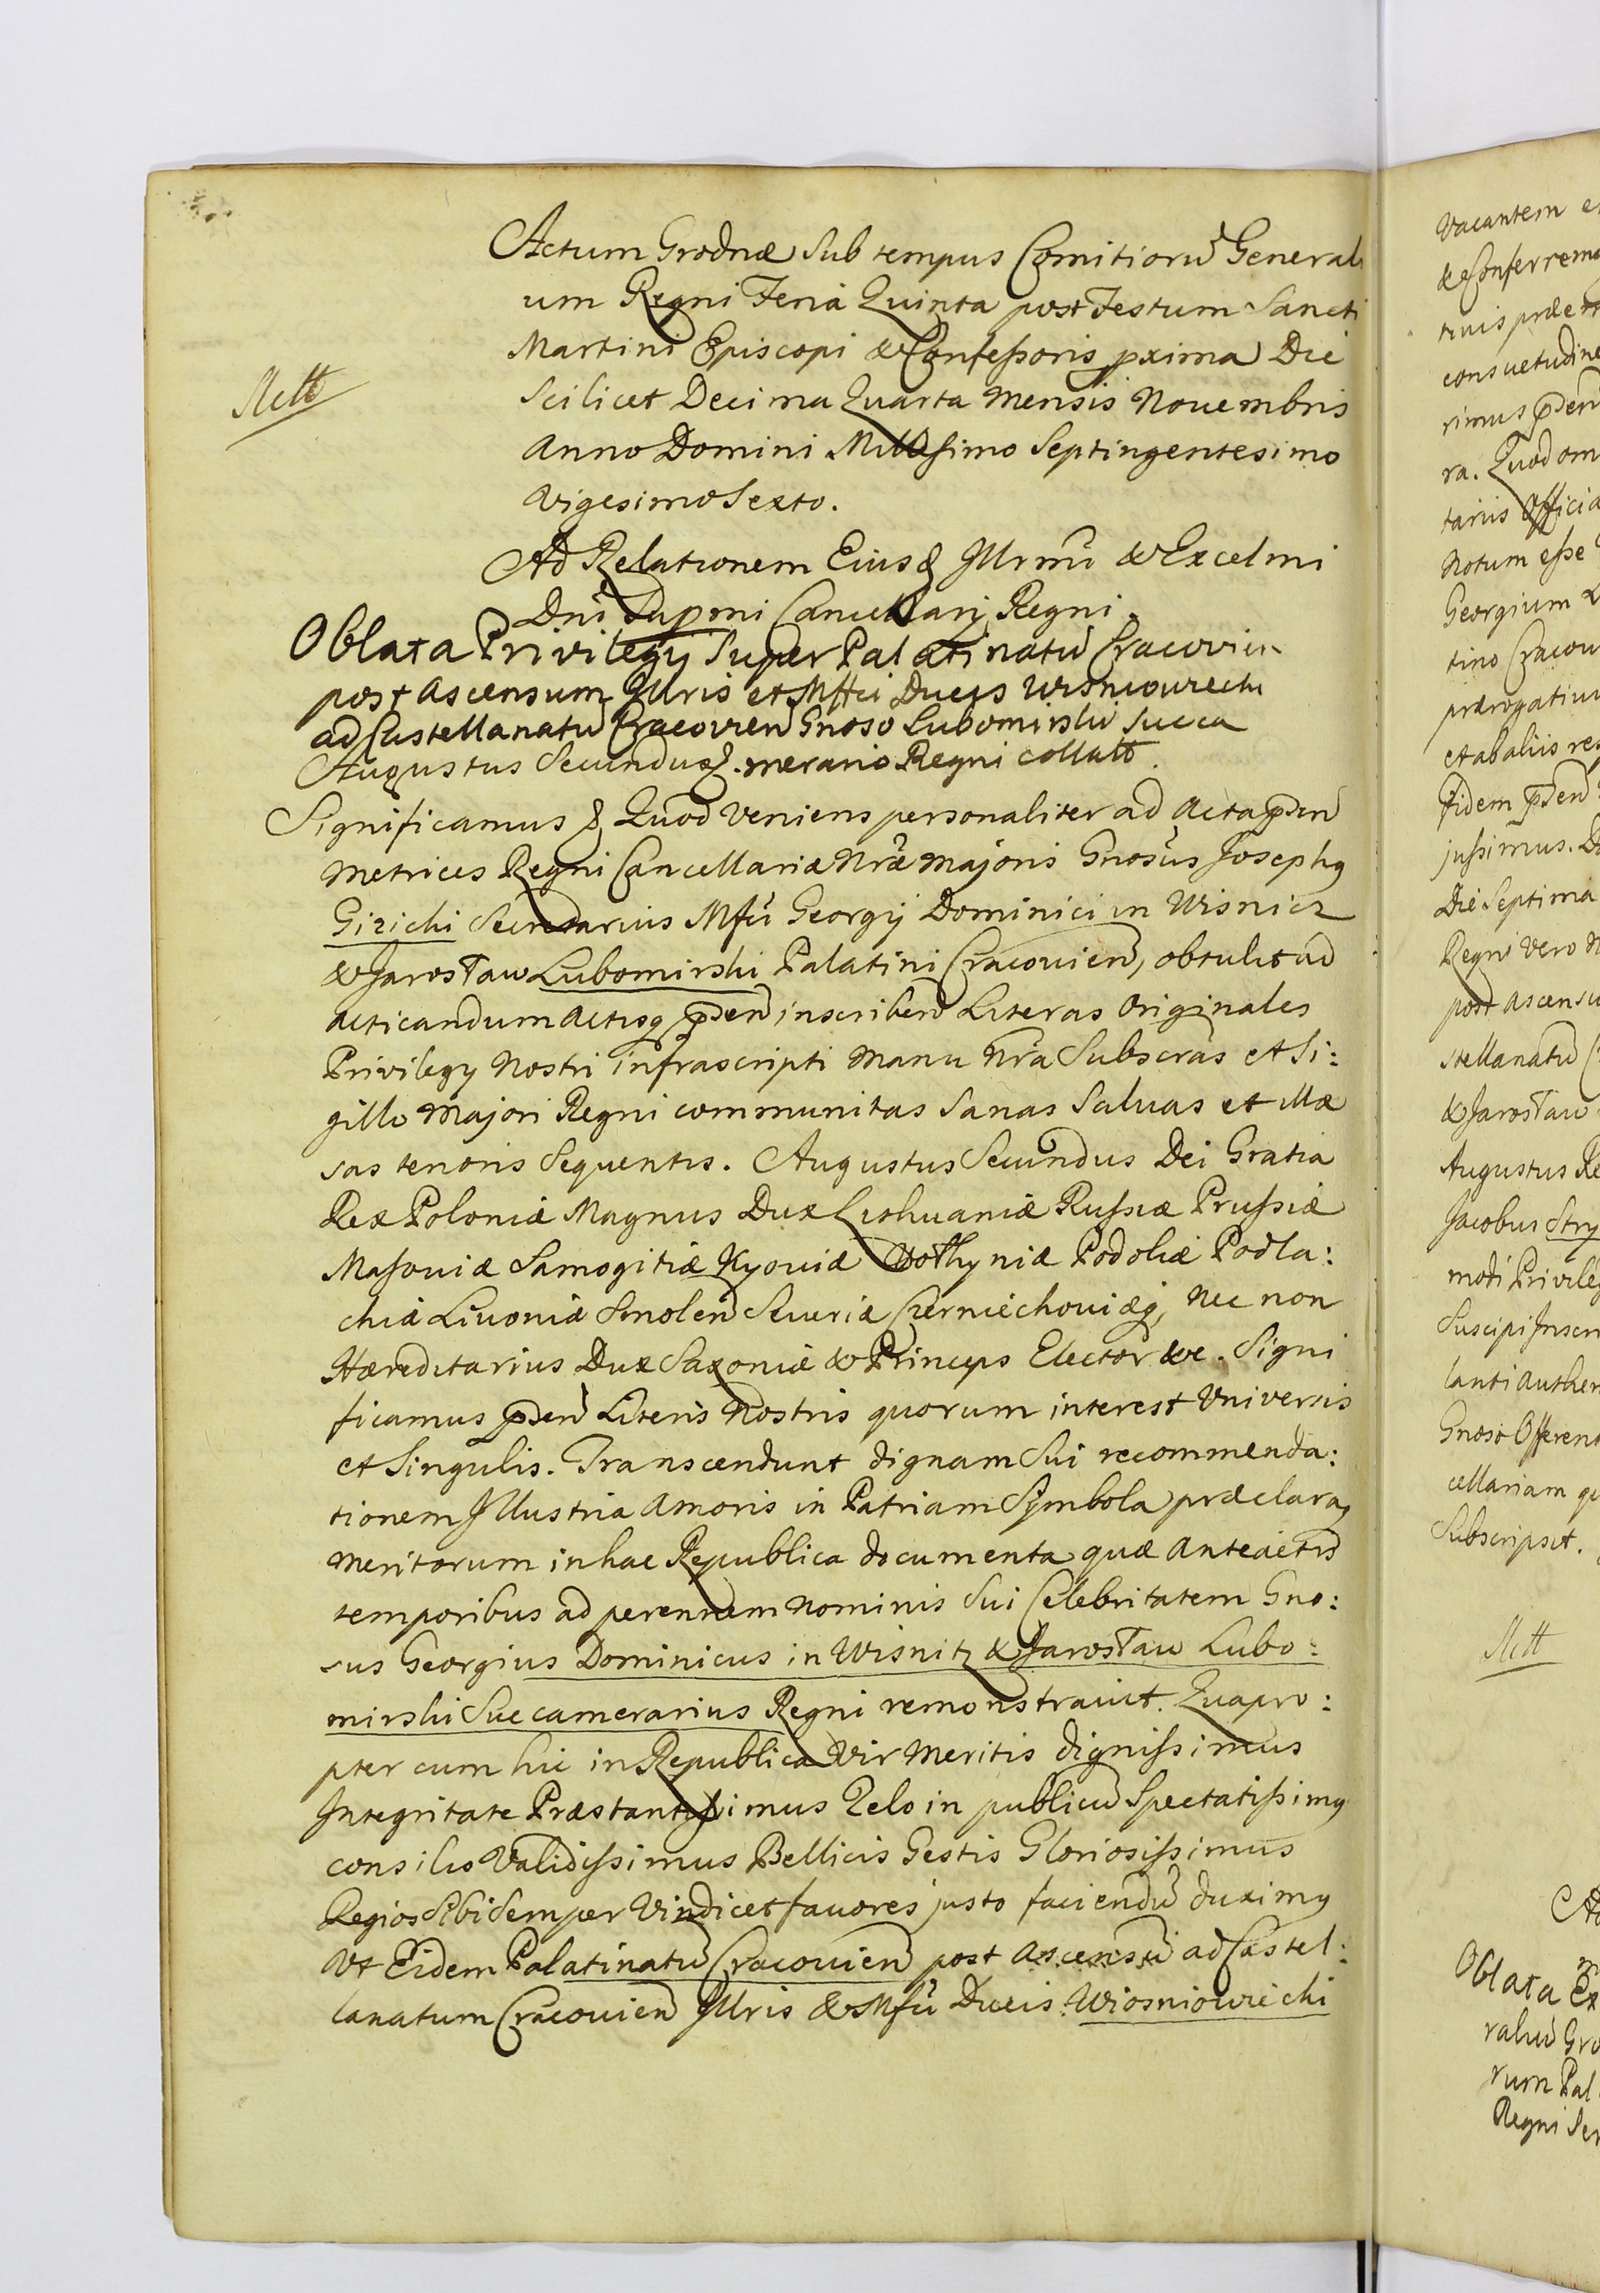 Actum Grodnæ Sub tempus Comitiorũ Generali
um Regni Feria Quinta post Festum Sancti
Martini Episcopi & Confeßoris pxima Die
Scilicet Decima Quarta Mensis Nouembris
Anno Domini Millesimo Septingentesimo
Vigesimo Sexto.
Ad Relationem Eiusd Jllrmi & Excelmi
Dni Supmi Cancellarij Regni.
Oblata Privilegij Super Palatinatũ Cracovien
post Ascensum Jllris et Mffci Ducis Wisniowiecki
ad Castellanatũ Cracovien Gnoso Lubomirski Succa
Augustus Secundus &. merario Regni collati.
Significamus & Quod Veniens personaliter ad Acta pden
Metrices Regni Cancellariæ Nræ Majoris Gnosus Josephq
Girichi Secretarius Mfci Georgij Dominici in Wisnicz
& Jarosław Lubomirski Palatini Cracouien, obtulit ad
acticandum Actisq pden inscribend Literas Originales
Privilegij Nostri infrascripti Manu Nra Subscras et Si:
gillo Majori Regni communitas Sanas Saluas et illæ
sas tenoris Sequentis. Augustus Secundus Dei Gratia
Rex Poloniæ Magnus Dux Lithuaniæ Rußiæ Prußiæ
Masouiæ Samogitiæ Kyouiæ Volhyniæ Podoliæ Podla:
chiæ Liuoniæ Smolen Seueriæ Czerniechouiæq, Nec non
Hæreditarius Dux Saxoniæ & Princeps Elector &c. Signi
ficamus pden Literis Nostris quorum interest Vniversis
et Singulis. Transcendunt dignam Sui recommenda:
tionem Jllustria Amoris in Patriam Symbola præclaraq
Meritorum in hac Republica documenta quæ Anteactis
temporibus ad perennem Nominis Sui Celebritatem Gno:
sus Georgius Dominicus in Wisnitz & Jarosław Lubo:
mirski Succamerarius Regni remonstrauit. Quapro:
pter cum hic in Republica Vir Meritis dignißimus
Jntegritate Præstantißimus Zelo in publicũ Spectatißimq
consilio Validißimus Bellicis Gestis Gloriosißimus
Regios Sibi Semper Vindicet fauores justo faciendũ duximq
Vt Eidem Palatinatũ Cracouien post Ascensũ ad Castel:
lanatum Cracouien Jllris & Mfci Ducis Wiosniowiecki
Mett
Vacantem
& Conferrem
consuetudine
rimus pden
ra. Quod om
tariis Officia
Notum eße
Georgium L
tino Cracou
prærogatiui
et ab aliis res
fidem pden
jußimus. D
Die Septima
Regni Vero N
post Ascensu
stellanatũ C
& Jarosław
Augustus Re
Jacobus Stry
modi Privileg
Suscipi Jnscri
lanti Authen
Gnoso Offeren
cellariam
Subscripsit.
Mett
Oblata Ex
Regni Ser